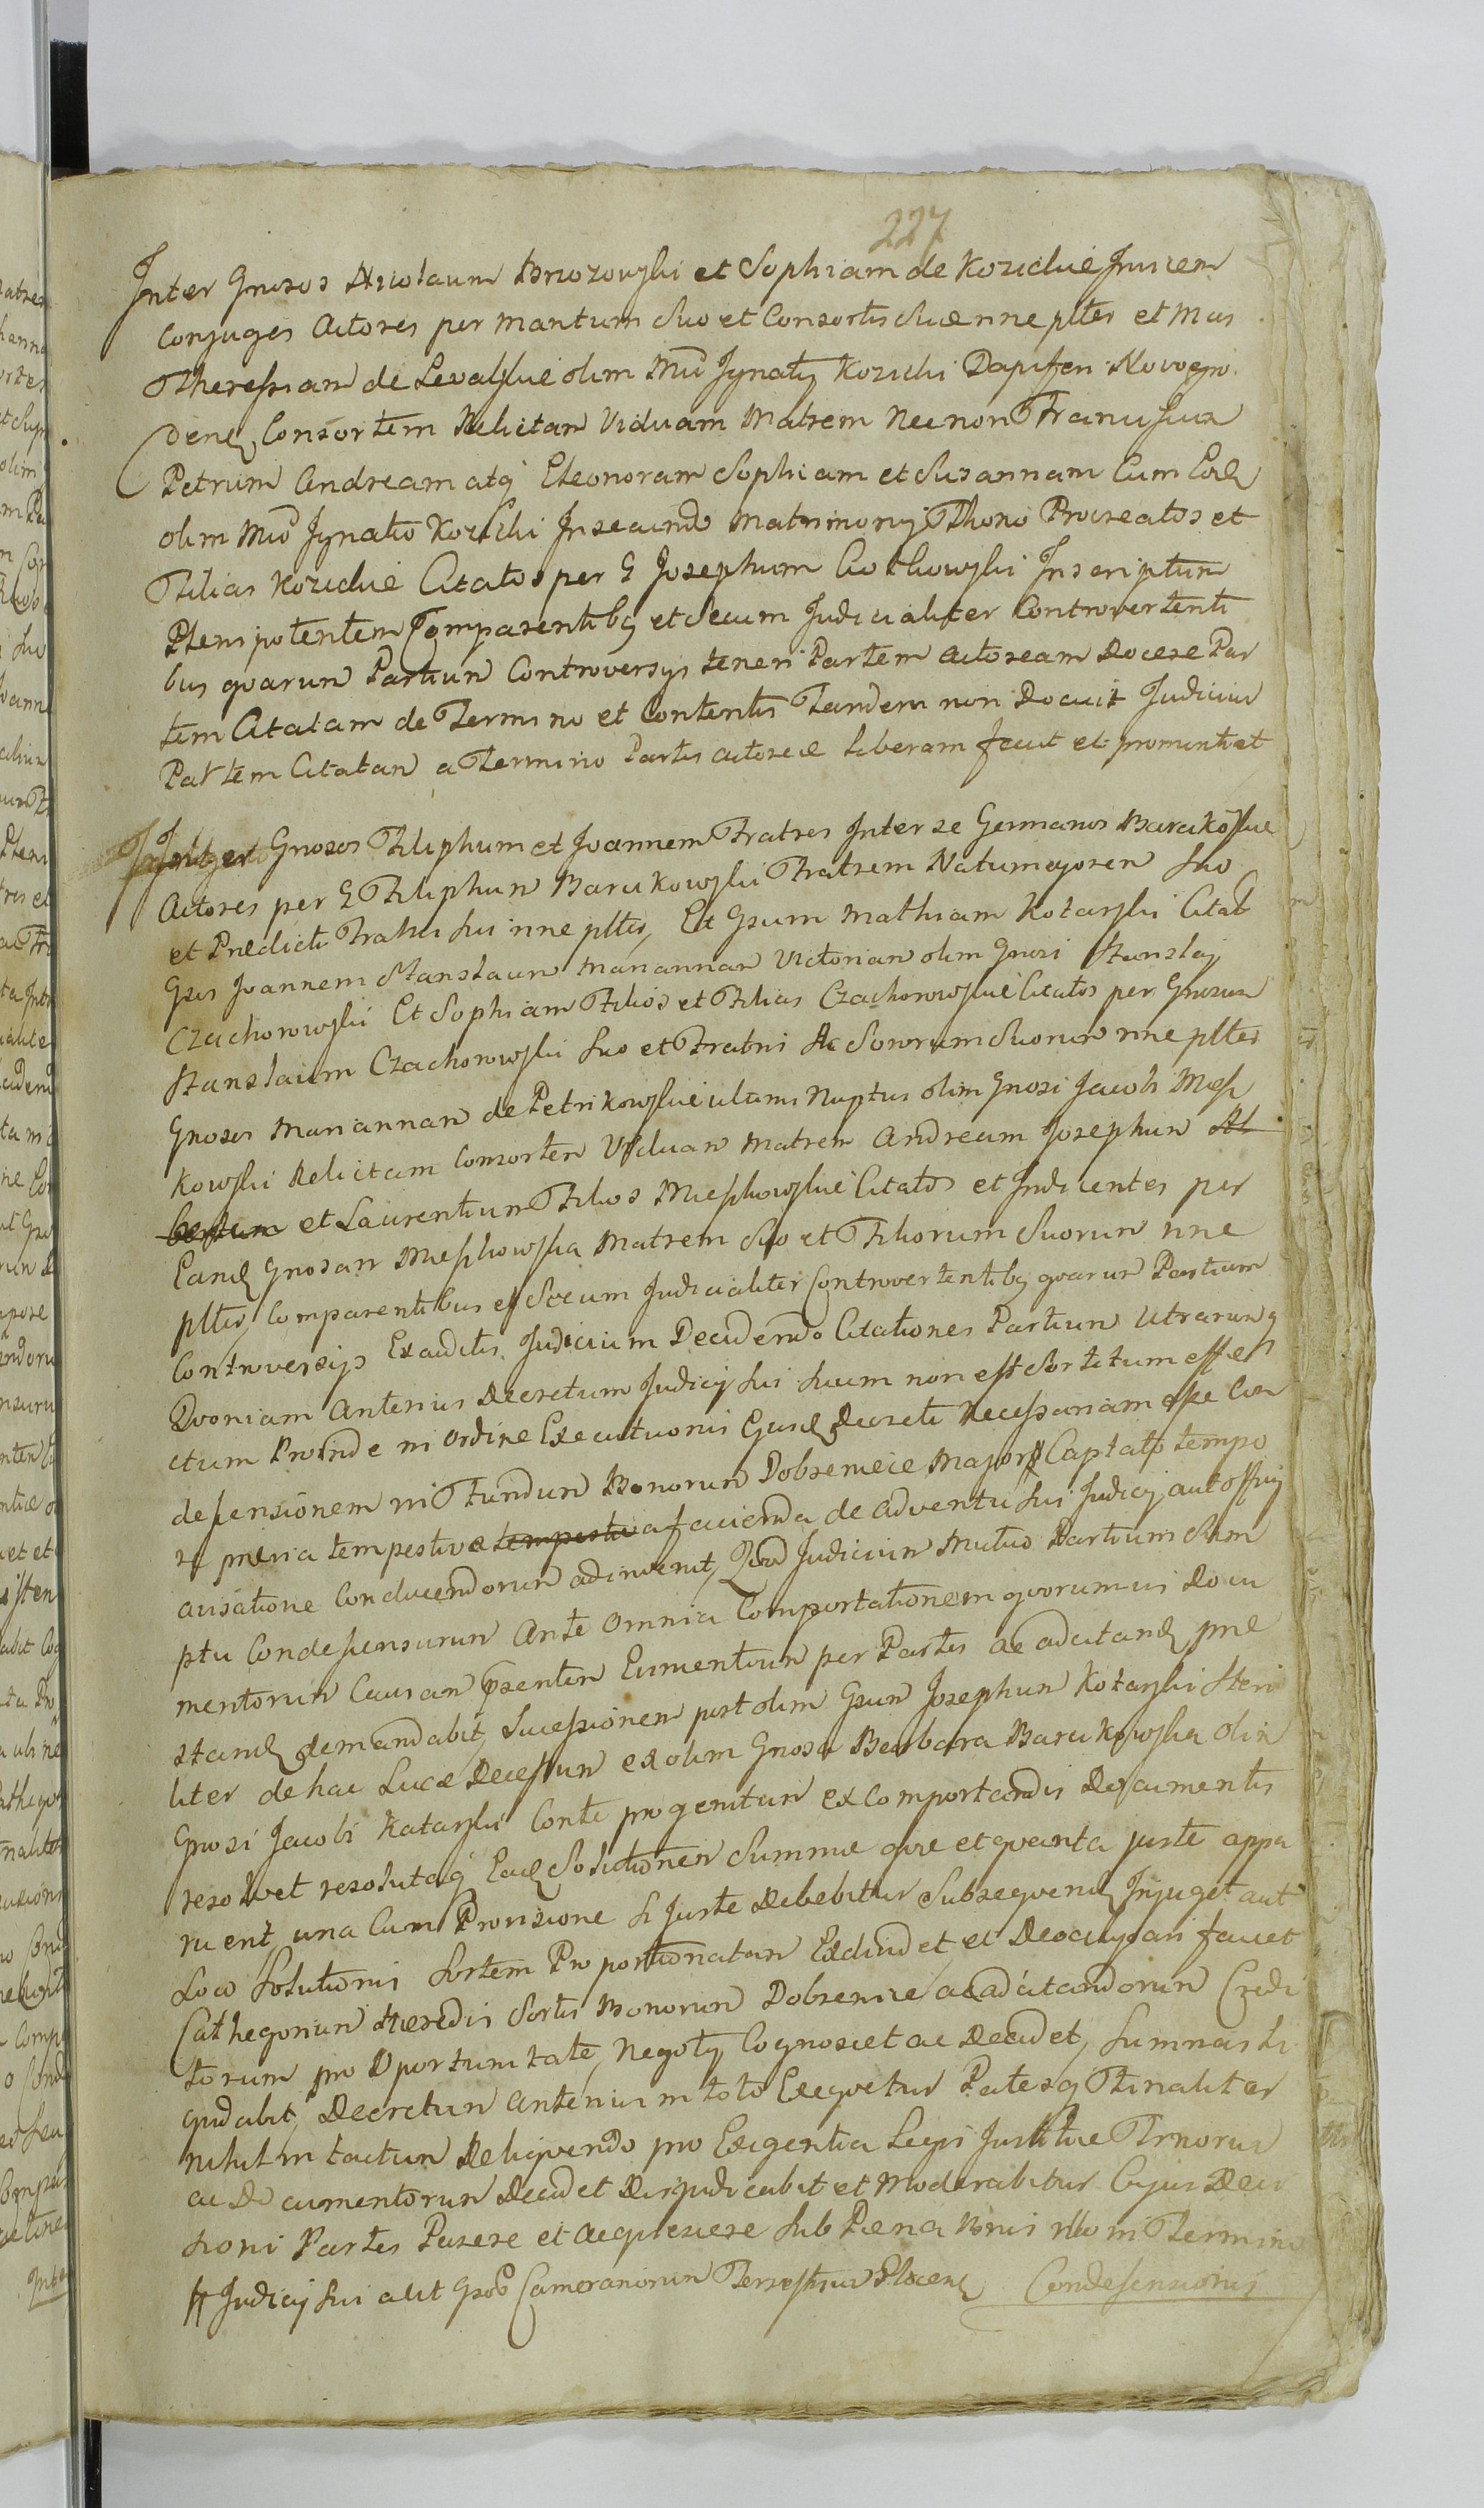 227
Inter Gnosos Nicolaum Brzozowski et Sophiam de Kozickie Invicem
Conjuges Actores per Maritum Suo et Consortis Suae nne pltes et Mas
Theressiam de Levalskie olim Mci Ignatij Kozicki Dapiferi Novogro
denẽ Consortem Relictam Viduam Matrem Necnon Franciscum
Petrum Andream atq Eleonoram Sophiam et Susannam Cum Eodẽ
olim Mco Ignatio Kozicki In secundo Matrimonij Thoro Procreatos et
Filias Kozickie Citatos per G Josephum Ciotkowski Inscriptum
Plenipotentem Comparentibq et Secum Judicialiter Controvertenti
bus qvarum Partium Controversijs teneri Partem Actoream Docere Par
tem Citatam de Termino et Contentis Tandem non Docuit Judicium
Partem Citatam a Termino Partis Actoreae Liberam fecit et pronuntiat
Inter Gnosos Filiphum et Joannem Fratres Inter se Germanos Barcikowskie
Actores per G Filiphum Barcikowski Fratrem Natumajorem Suo
et Praedicti Fratris Sui nne pltes, Et Gsum Mathiam Kotarski Citat
Gsos Joannem Stanislaum Mariannam Victoriam olim Gnosi Stanislaj
Czachorowski Et Sophiam Filios et Filias Czachorowskie Citatos per Gnosum
Stanislaum Czachorowski Suo et Fratris Ac Sororum Suorum nne pltes
Gnosos Mariannam de Petrikowskie ultimi Nuptus olim Gnosi Jacobi Miesz
kowski Relictam Consortem Viduam Matrem Andream Josephum Al
bertum et Laurentium Filios Mieszkowskie Citatos et Inducentes per
Eandẽ Gnosam Mieszkowska Matrem Suo et Filiorum Suorum nne
pltes, Comparentibus et Secum Judicialiter Controvertentibq qvarum Partium
Controversijs Exauditis Judicium Decidendo Citationes Partium Utrarumq
Qvoniam Anterius Decretum Judicij Sui Suum non est Sortitum effe
ctum Proinde in Ordine Executionis Ejusdẽ Decreti Necessariam esse Con
descensionem in Fundum Bonorum Dobrzenice Major Captato tempo
re praevia tempestive tempestiva facienda de adventu Sui Judicij aut officij
avisatione Conducendorum adinvenit, Qvod Judicium Mutuo Partium Sum
ptu Condescensurum Ante Omnia Comportationem qvorumvis Docu
mentorum Causam Praesentem Concernentium per Partes ac adcitandẽ prae
standẽ demandabit, Sucessionem post olim Gsum Josephum Kotarski Steri
liter de hac Luce Decessum ex olim Gnosa Barbara Barcikowska olim
Gnosi Jacobi Kotarski Conte progenitum ex Comportandis Documentis
resolvet resolutaq Eadẽ Solutionem Summae qvae et qvanta juste appa
ruerit una Cum Provisione Si Juste Debebitur Subseqvendẽ Injuget aut
Loco Solutionis Sortem Proportionatam Exdividet et Deocupari faciet
Cathegoriam Haeredis Sortis Bonorum Dobrzenice ac adcitandorum Credi
torum pro Oportunitate Negotij Cognoscet ac Decidet, Summas Li
qvidabit, Decretum Anterius in toto Exeqvetur Partesq Finaliter
nihil intactum Reliqvendo pro Exigentia Legis Justitiae
ac Documentorum Decidet Disjudicabit et Moderabitur Cujus Deci
sioni Partes Parere et Acqviescere Sub Paena Bonis illo in Termino
Judicij Sui alit Camerariorum Terrestrium Plocenẽ Condescensionis